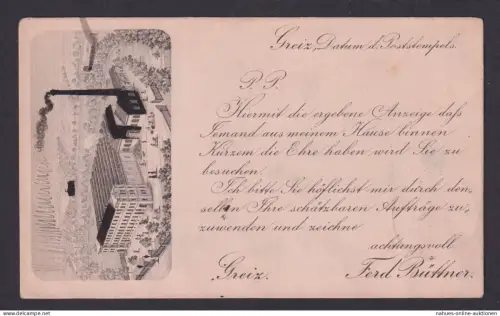 Greiz, Datum d. Poststempels.
P. P.
Hiermit die ergebene Anzeige daſs
Jemand aus meinem Hause binnen
Kurzem die Ehre haben wird Sie zu
besuchen.
Ich bitte Sie höflichst mir durch den„
selben Ihre schätzbaren Aufträge zu„
zuwenden und zeichne
achtungsvoll
Greiz. Ferd Büttner.
© nahues-online-auktionen